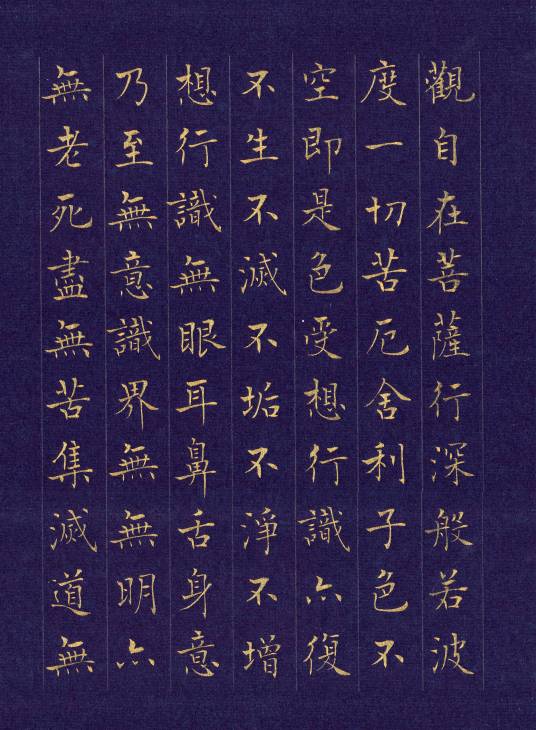 觀自在菩薩行深般若波
度一切苦厄舍利子色不
空即是色受想行識亦復
不生不滅不垢不淨不增
想行識無眼耳鼻舌身意
乃至無意識界無無明亦
無老死盡無苦集滅道無